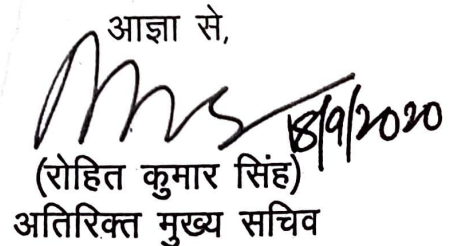 आज्ञा से,
18/9/2020
(रोहित कुमार सिंह)
अतिरिक्त मुख्य सचिव